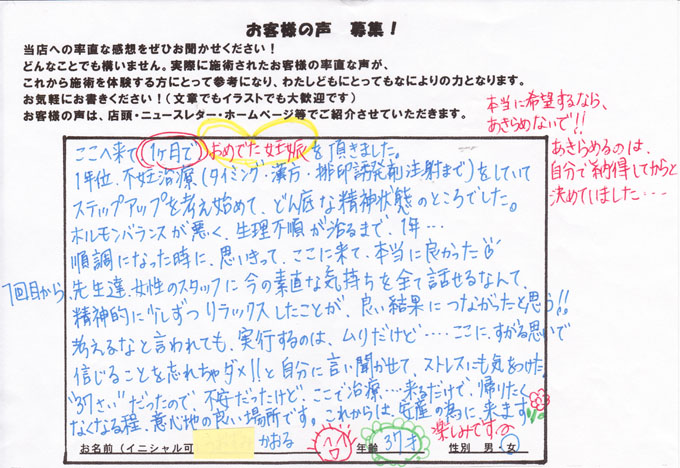 お客様の声 募集！
当店への率直な感想をぜひお聞かせください！
どんなことでも構いません。実際に施術されたお客様の率直な声が、
これから施術を体験する方にとって参考になり、わたしどもにとってもなによりの力となります。
お気軽にお書きください！（文章でもイラストでも大歓迎です）
お客様の声は、店頭・ニュースレター・ホームページ等でご紹介させていただきます。
本当に希望するなら、
あきらめないで!!
あきらめるのは、
自分で納得してからと
決めていました・・・
ここへ来て1ヶ月でおめでた妊娠を頂きました。
1年位、不妊治療(タイミング・漢方・排卵誘発剤注射まで)をしていて
ステップアップを考え始めて、どん底な精神状態のところでした。
ホルモンバランスが悪く、生理不順が治るまで、1年…
順調になった時に、思いきって、ここに来て、本当に良かった
1回目から、先生達、女性のスタッフに今の素直な気持ちを全て話せるなんて、
精神的に少しずつリラックスしたことが、良い結果につながったと思う!!
考えるなと言われても、実行するのは、ムリだけど・・・ここに、すがる思いで
信じることを忘れちゃダメ!!と自分に言い聞かせて、ストレスにも気をつけた。
"37さい"だったので、不安だったけど、ここで治療…来るだけで、帰りたく
なくなる程、居心地の良い場所です。これからは、安産の為に来ます
楽しみです
お名前（イニシャル可 かおる 年齢 37才 性別 男・女